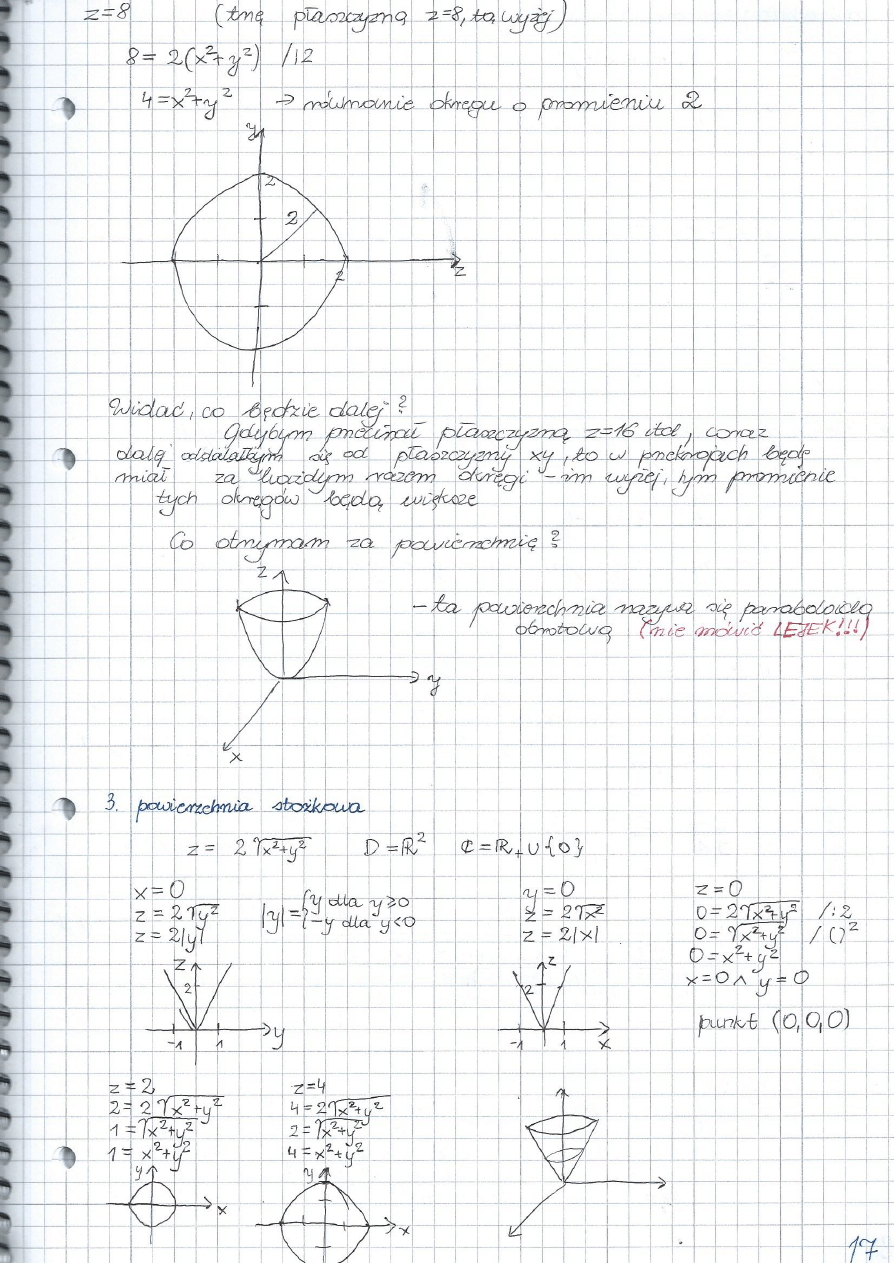 z=8 (tnę płaszczyzną z=8, to wyżej)
8 = 2(x²+y²) /:2
4 = x²+y² → równanie okręgu o promieniu 2
y
2
2
2
z
Widać, co będzie dalej?
Gdybym przecinał płaszczyzną z=16 itd, coraz
dalej oddalałabym się od płaszczyzny xy, to w przekrojach będę
miał za każdym razem okręgi - im wyżej, tym promienie
tych okręgów będą większe
Co otrzymam za powierzchnię?
z
- ta powierzchnia nazywa się paraboloidą
obrotową (nie mówić LEJEK!!!)
y
x
3. powierzchnia stożkowa
z = 2√x²+y² D = ℝ² ℂ = ℝ₊∪{0}
x=0
z = 2√y²
z = 2|y|
|y| = { y dla y≥0
-y dla y<0
y=0
z = 2√x²
z = 2|x|
z=0
0=2√x²+y² /:2
0=√x²+y² /()²
0=x²+y²
x=0 ∧ y=0
punkt (0,0,0)
z
2
-1 1 y
z
2
-1 1 x
z=2
2=2√x²+y²
1=√x²+y²
1= x²+y²
y
x
z=4
4=2√x²+y²
2=√x²+y²
4=x²+y²
y
x
17